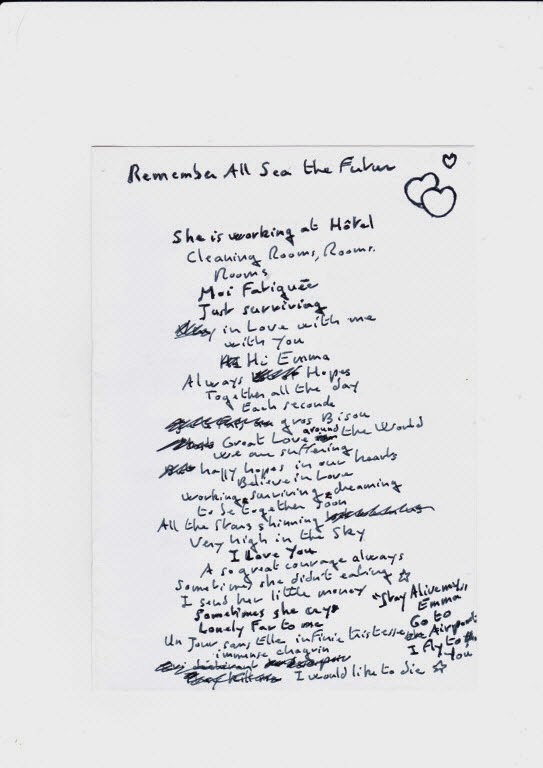 Remember All Sea the Futur
She is working at Hôtel
Cleaning Rooms, Rooms.
Rooms
Moi Fatiguée
Just surviving
in Love with me
with You
Hi Emma
Always Hopes
Together all the day
Each seconde
gros Bisou
Great Love around the World
we are suffering
happy hopes in our hearts
Believe in Love
working surviving dreaming
to be together soon
All the Stars shinning
Very high in the Sky
I Love You
A so great courage always
Sometimes she didn't eating
I send her little money
Sometimes she crys
Lonely Far to me
Un Jour sans Elle infinie tristesse
immense chagrin
I would like to die
"Stay Alive
Emma
Go to
Airport
I fly to
You